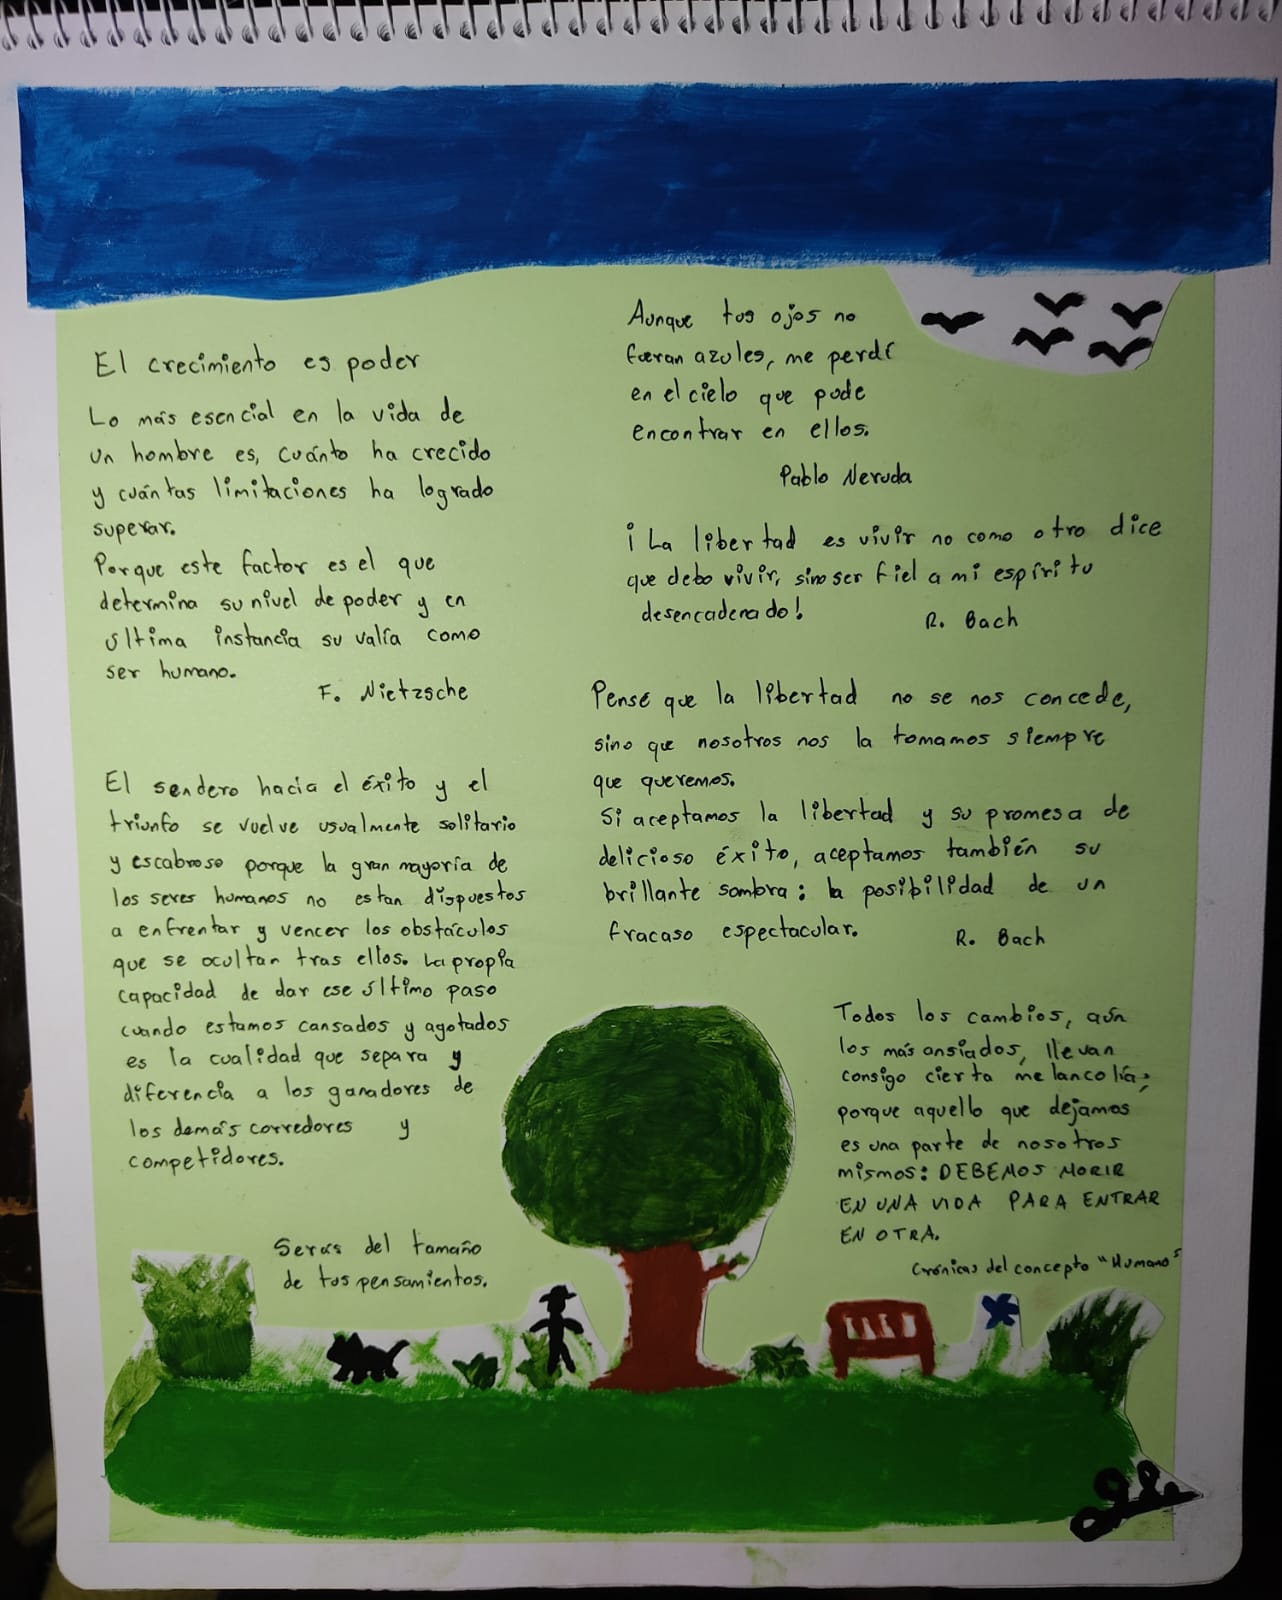 El crecimiento es poder
Lo más esencial en la vida de
un hombre es, cuánto ha crecido
y cuántas limitaciones ha logrado
superar.
Porque este factor es el que
determina su nivel de poder y en
última instancia su valía como
ser humano.
F. Nietzsche
El sendero hacia el éxito y el
triunfo se vuelve usualmente solitario
y escabroso porque la gran mayoría de
los seres humanos no estan dispuestos
a enfrentar y vencer los obstáculos
que se ocultan tras ellos. La propia
capacidad de dar ese último paso
cuando estamos cansados y agotados
es la cualidad que separa y
diferencia a los ganadores de
los demás corredores y
competidores.
Serás del tamaño
de tus pensamientos.
Aunque tus ojos no
fueran azules, me perdí
en el cielo que pude
encontrar en ellos.
Pablo Neruda
¡La libertad es vivir no como otro dice
que debo vivir, sino ser fiel a mi espíritu
desencadenado!
R. Bach
Pensé que la libertad no se nos concede,
sino que nosotros nos la tomamos siempre
que queremos.
Si aceptamos la libertad y su promesa de
delicioso éxito, aceptamos también su
brillante sombra: la posibilidad de un
fracaso espectacular.
R. Bach
Todos los cambios, aún
los más ansiados, llevan
consigo cierta melancolía;
porque aquello que dejamos
es una parte de nosotros
mismos: DEBEMOS MORIR
EN UNA VIDA PARA ENTRAR
EN OTRA.
Crónicas del concepto "Humano"